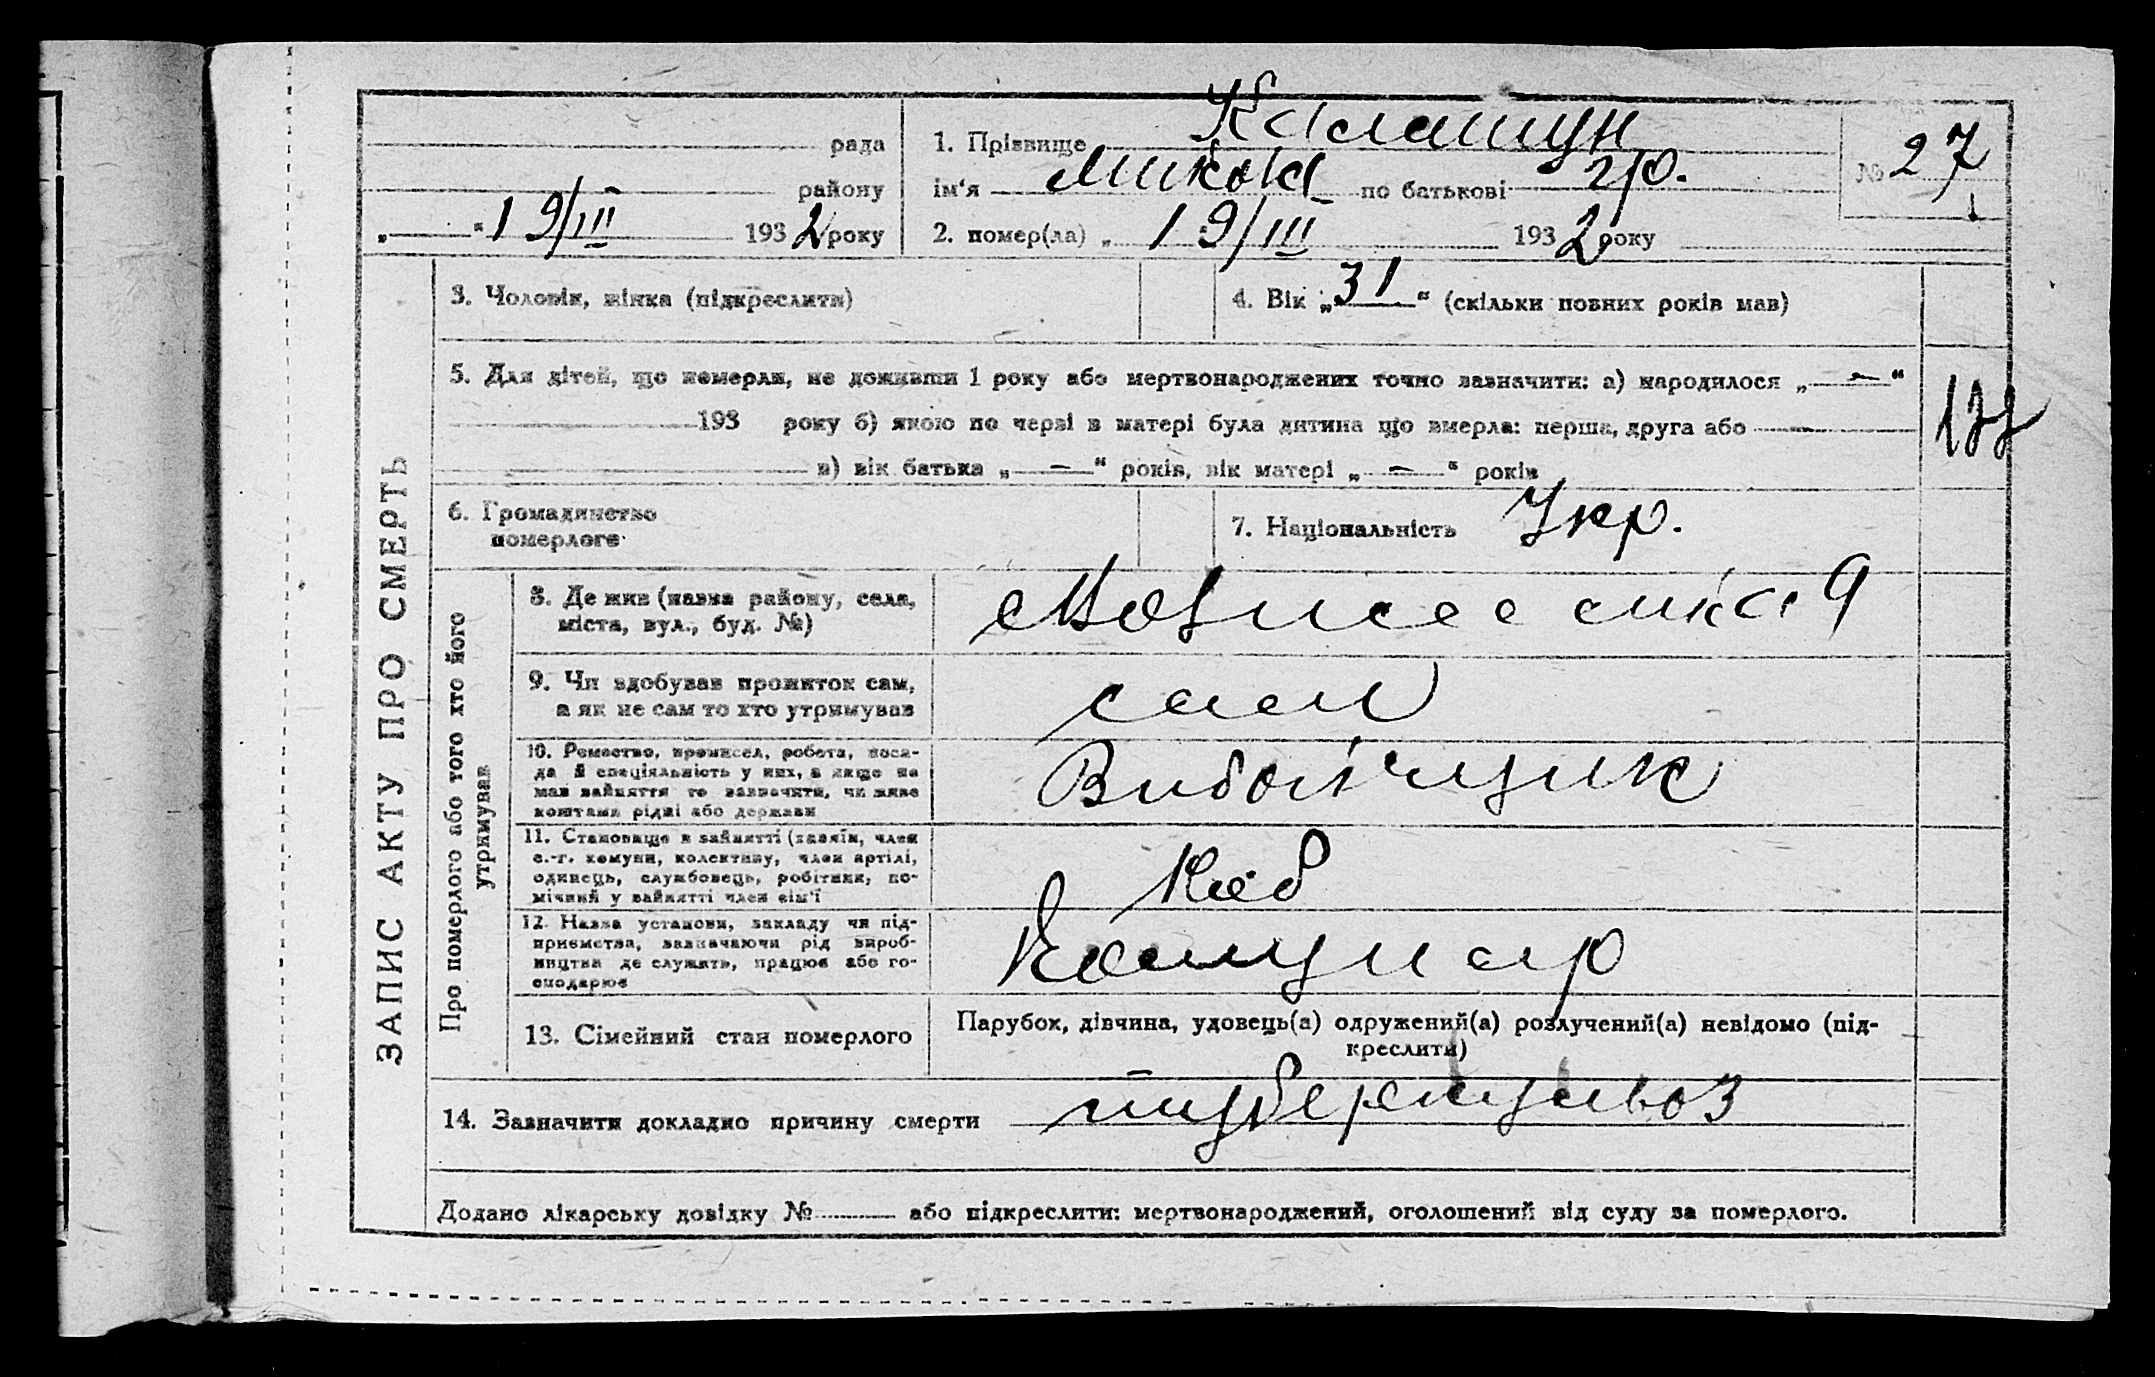 рада
району
„ “ 19/III 1932 року
1. Прізвище Калашун
ім‘я Микола по батькові гр.
2. помер(ла) „ 19/III 1932 року
№ 27
3. Чоловік, жінка (підкреслити)
4. Вік „31“ (скільки повних років мав)
5. Для дітей, що померли, не доживши 1 року або мертвонароджених точно зазначити: а) народилося „ — “
193 року б) якою по черзі в матері була дитина що вмерла: перша, друга або —
в) вік батька „ — “ років, вік матері „ — “ років
6. Громадянство
померлого
7. Національність Укр.
ЗАПИС АКТУ ПРО СМЕРТЬ
Про померлого або того хто його
утримував
8. Де жив (назва району, села,
міста, вул., буд. №)
9
9. Чи здобував прожиток сам,
а як не сам то хто утримував
сам
10. Ремество, промисел, робота, поса-
да й спеціяльність у них, а якщо не
мав зайняття то зазначити, чи живе
коштами рідні або держави
Вибойщик
11. Становище в зайнятті (хазяїн, член
с.-г. комуни, колективу, член артілі,
одинець, службовець, робітник, по-
мічний у зайнятті член сім‘ї
Роб
12. Назва установи, закладу чи під-
приємства, зазначаючи рід вироб-
ництва де служить, працює або го-
сподарює
Комунар
13. Сімейний стан померлого
Парубок, дівчина, удовець(а) одружений(а) розлучений(а) невідомо (під-
креслити)
14. Зазначити докладно причину смерти туберкульоз
Додано лікарську довідку № або підкреслити: мертвонароджений, оголошений від суду за померлого.